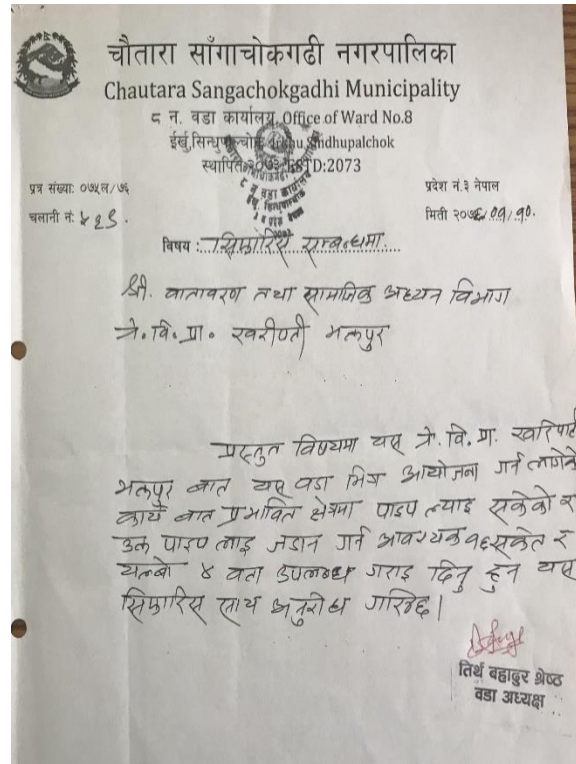 चौतारा साँगाचोकगढी नगरपालिका
Chautara Sangachokgadhi Municipality
८ न. वडा कार्यालय, Office of Ward No.8
ईर्खु,सिन्धुपाल्चोक Irkhu,Sindhupalchok
स्थापित:२०७३ ESTD:2073
पत्र संख्या: ०७५/०७६
प्रदेश नं.३ नेपाल
चलानी नं: ५२९.
मिती २०७६/०१/१०.
विषय : सिफारिस सम्बन्धमा
श्री. वातावरण तथा सामाजिक अध्यन विभाग
ने.वि.प्रा. खरीपाटी भक्तपुर
प्रस्तुत विषयमा यस ने.वि.प्रा. खरिपाटी
भक्तपुर बाट यस वडा भित्र आयोजना गर्न लागेको
कार्य बाट प्रभावित क्षेत्रमा पाइप ल्याइ सकेको र
उक्त पाइप लाइ जडान गर्न आवश्यक १६ सकेत र
यल्बो ४ वटा उपलब्ध गराइ दिनु हुन यस
सिफारिस साथ अनुरोध गरिन्छ।
तिर्थ बहादुर श्रेष्ठ
वडा अध्यक्ष